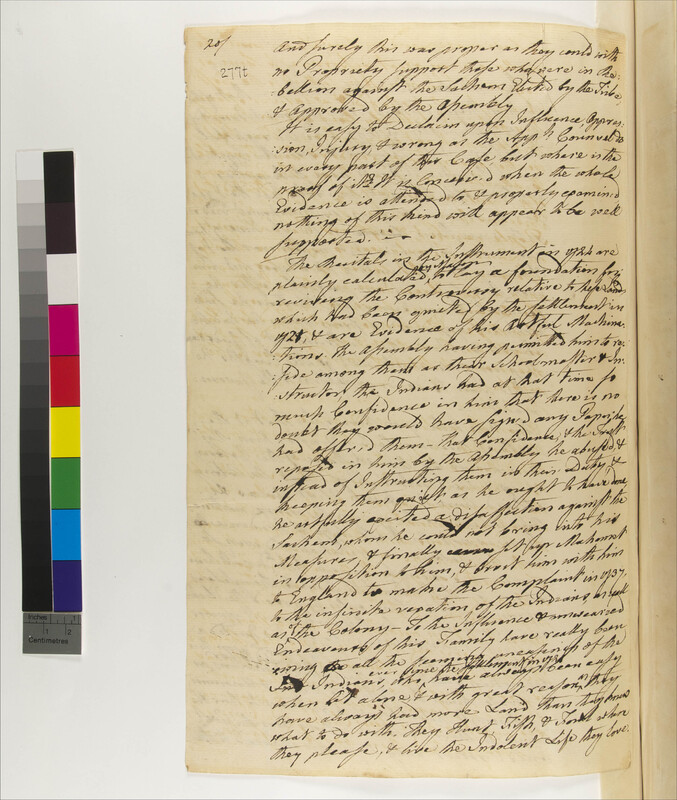 20/
277t
And surely this was proper as they could with
no Propriety support those who were in Re-
bellion against the Sachem Elected by the Tribe,
& Approved by the Assembly
It is easy to Declaim upon Influence Oppres-
sion, Injury & wrong as the App.ts Counsel do
in every part of their Case but where is the
proof of it? It is Conceived when the whole
Evidence is attended to & properly examined
nothing of this kind will appear to be well
supported.
The Recitals in the Instrument in 1724 are
plainly calculated, to lay a foundation for
reviving the Controversy relative to these Lands
which had been quieted by the settlement in
1721, & are Evidence of his Artful Machina-
tions. The Assembly having permitted him to re-
side among them as their Schoolmaster & In-
structor the Indians had at that time so
much Confidence in him that there is no
doubt they would have signed any Paper he
had offered them - that Confidence, & the Trust
reposed in him by the Assembly he abused, &
instead of Instructing them in their Duty, &
keeping them quiet as he ought to have done,
he artfully excited a disaffection against the
Sachem, whom he could not bring into his
Measures, & finally set up Mahomet
in opposition to him, & went with him
to England to make the Complaint in 1737,
to the infinite vexation of the Indians, as well
as the Colony - To the Influence & unwearied
Endeavours of his Family have really been
owing all the seeming uneasiness of the
ever since the Settlement in
Indians, who have always been easy
when let alone & with great reason, as they
have always had more Land than they knew
what to do with. They Hunt, Fish, & Fowl where
they please, & live the Indolent Life they love.
Inches
1
2
Centimetres